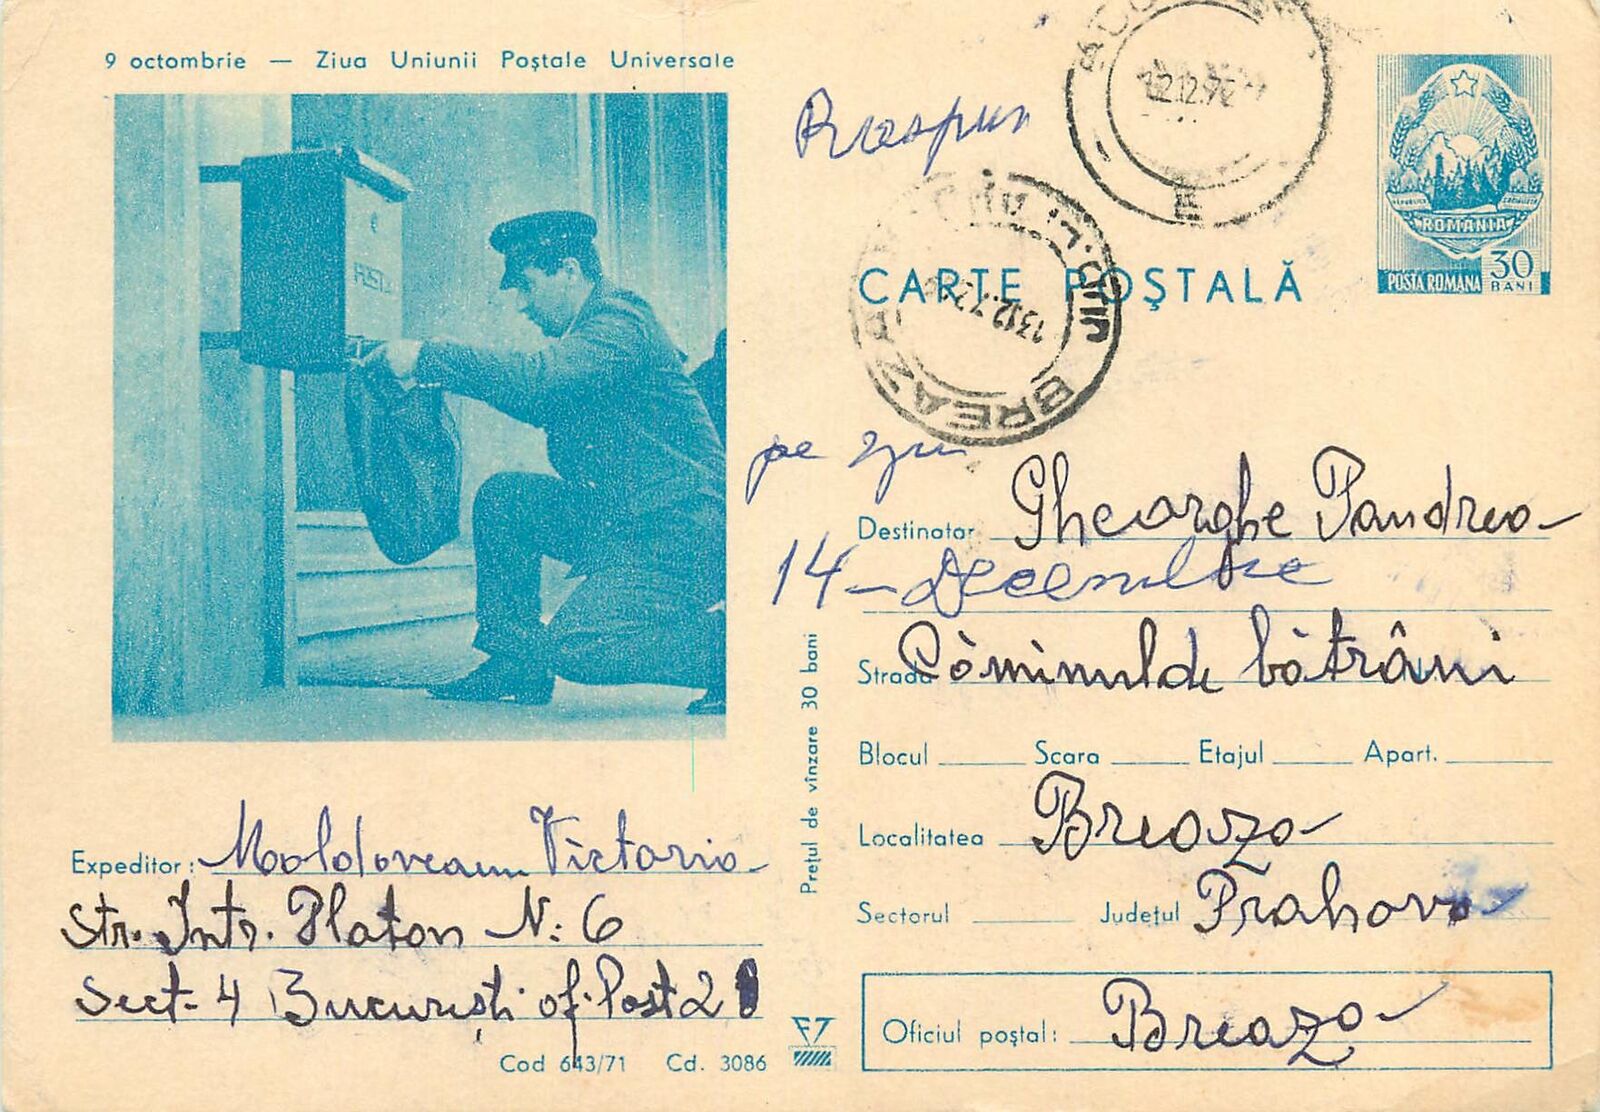 9 octombrie — Ziua Uniunii Poștale Universale
POST
Raspuns
22.12.72
ROMANIA
POSTA ROMANA
30 BANI
CARTE POȘTALĂ
JUD. PRAHOVA
13.12.72
BREAZA
pe ziua
14 – Decembrie
Destinatar Gheorghe Pandrea
Strada Căminul de bătrâni
Blocul Scara Etajul Apart.
Localitatea Breaza
Sectorul Județul Prahova
Oficiul poștal: Breaza
Prețul de vînzare 30 bani
Expeditor: Moldoveanu Victoria
Str. Intr. Platon N: 6
Sect. 4 București of. Post 28
Cod 643/71 Cd. 3086